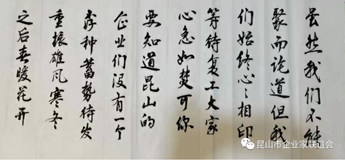 虽然我们不能
聚而论道但我
们始终心心相印
等待复工大家
心急如焚可你
要知道昆山的
企业们没有一个
孬种蓄势待发
重振雄风寒冬
之后春暖花开
昆山市企业家联谊会